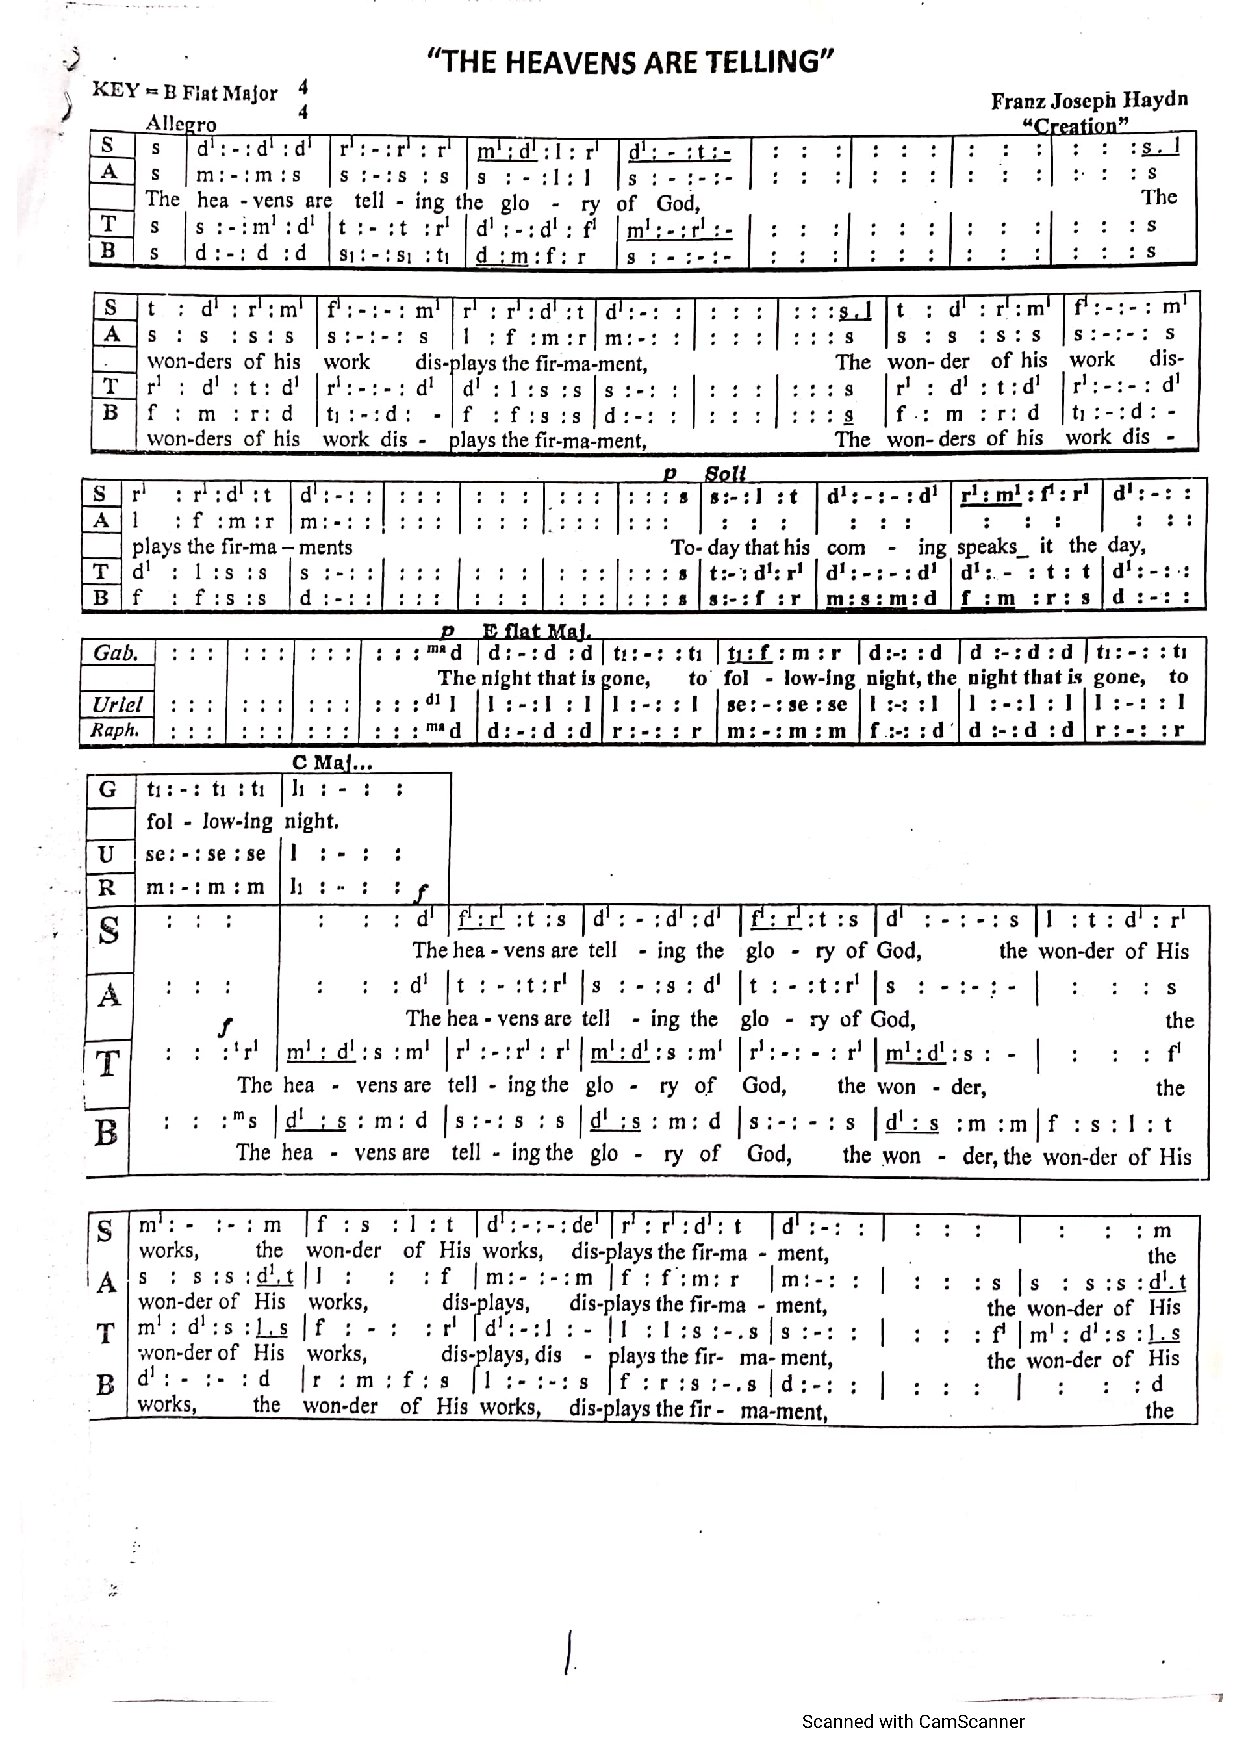 “THE HEAVENS ARE TELLING”
KEY = B Flat Major 4
4
Franz Joseph Haydn
Allegro “Creation”
S s d¹ : - : d¹ : d¹ | r¹ : - : r¹ : r¹ | m¹ : d¹ : l : r¹ | d¹ : - : t : - | : : : | : : : | : : : | : : : s . l
A s m : - : m : s | s : - : s : s | s : - : l : l | s : - : - : - | : : : | : : : | : : : | : : : s
The hea - vens are tell - ing the glo - ry of God, The
T s s : - : m¹ : d¹ | t : - : t : r¹ | d¹ : - : d¹ : f¹ | m¹ : - : r¹ : - | : : : | : : : | : : : | : : : s
B s d : - : d : d | s₁ : - : s₁ : t₁ | d : m : f : r | s : - : - : - | : : : | : : : | : : : | : : : s
S t : d¹ : r¹ : m¹ | f¹ : - : - : m¹ | r¹ : r¹ : d¹ : t | d¹ : - : : | : : : | : : : s . l | t : d¹ : r¹ : m¹ | f¹ : - : - : m¹
A s : s : s : s | s : - : - : s | l : f : m : r | m : - : : | : : : | : : : s | s : s : s : s | s : - : - : s
won-ders of his work dis-plays the fir-ma-ment, The won- der of his work dis-
T r¹ : d¹ : t : d¹ | r¹ : - : - : d¹ | d¹ : l : s : s | s : - : : | : : : | : : : s | r¹ : d¹ : t : d¹ | r¹ : - : - : d¹
B f : m : r : d | t₁ : - : d : - | f : f : s : s | d : - : : | : : : | : : : s | f : m : r : d | t₁ : - : d : -
won-ders of his work dis - plays the fir-ma-ment, The won- ders of his work dis -
p Soli
S r¹ : r¹ : d¹ : t | d¹ : - : : | : : : | : : : | : : : | : : : s | s : - : l : t | d¹ : - : - : d¹ | r¹ : m¹ : f¹ : r¹ | d¹ : - : :
A l : f : m : r | m : - : : | : : : | : : : | : : : | : : : | : : : | : : : | : : : | : : :
plays the fir-ma – ments To- day that his com - ing speaks_ it the day,
T d¹ : l : s : s | s : - : : | : : : | : : : | : : : | : : : s | t : - : d¹ : r¹ | d¹ : - : - : d¹ | d¹ : - : t : t | d¹ : - : :
B f : f : s : s | d : - : : | : : : | : : : | : : : | : : : s | s : - : f : r | m : s : m : d | f : m : r : s | d : - : :
p E flat Maj.
Gab. : : : | : : : | : : : | : : : ᵐᵃ d | d : - : d : d | t₁ : - : : t₁ | t₁ : f : m : r | d : - : : d | d : - : d : d | t₁ : - : : t₁
The night that is gone, to fol - low-ing night, the night that is gone, to
Uriel : : : | : : : | : : : | : : : ᵈ¹ l | l : - : l : l | l : - : : l | se : - : se : se | l : - : : l | l : - : l : l | l : - : : l
Raph. : : : | : : : | : : : | : : : ᵐᵃ d | d : - : d : d | r : - : : r | m : - : m : m | f : - : : d | d : - : d : d | r : - : : r
C Maj...
G t₁ : - : t₁ : t₁ | l₁ : - : :
fol - low-ing night.
U se : - : se : se | l : - : :
R m : - : m : m | l₁ : - : : f
S : : : | : : : d¹ | f¹ : r¹ : t : s | d¹ : - : d¹ : d¹ | f¹ : r¹ : t : s | d¹ : - : - : s | l : t : d¹ : r¹
The hea - vens are tell - ing the glo - ry of God, the won-der of His
A : : : | : : : d¹ | t : - : t : r¹ | s : - : s : d¹ | t : - : t : r¹ | s : - : - : - | : : : s
The hea - vens are tell - ing the glo - ry of God, the
f
T : : : ᵗ r¹ | m¹ : d¹ : s : m¹ | r¹ : - : r¹ : r¹ | m¹ : d¹ : s : m¹ | r¹ : - : - : r¹ | m¹ : d¹ : s : - | : : : f¹
The hea - vens are tell - ing the glo - ry of God, the won - der, the
B : : : ᵐ s | d¹ : s : m : d | s : - : s : s | d¹ : s : m : d | s : - : - : s | d¹ : s : m : m | f : s : l : t
The hea - vens are tell - ing the glo - ry of God, the won - der, the won-der of His
S m¹ : - : - : m | f : s : l : t | d¹ : - : - : de¹ | r¹ : r¹ : d¹ : t | d¹ : - : : | : : : | : : : m
works, the won-der of His works, dis-plays the fir-ma - ment, the
A s : s : s : d¹ . t | l : : : f | m : - : - : m | f : f : m : r | m : - : : | : : : s | s : s : s : d¹ . t
won-der of His works, dis-plays, dis-plays the fir-ma - ment, the won-der of His
T m¹ : d¹ : s : l . s | f : - : : r¹ | d¹ : - : l : - | l : l : s : - . s | s : - : : | : : : f¹ | m¹ : d¹ : s : l . s
won-der of His works, dis-plays, dis - plays the fir- ma- ment, the won-der of His
B d¹ : - : - : d | r : m : f : s | l : - : - : s | f : r : s : - . s | d : - : : | : : : | : : : d
works, the won-der of His works, dis-plays the fir - ma-ment, the
1.
Scanned with CamScanner